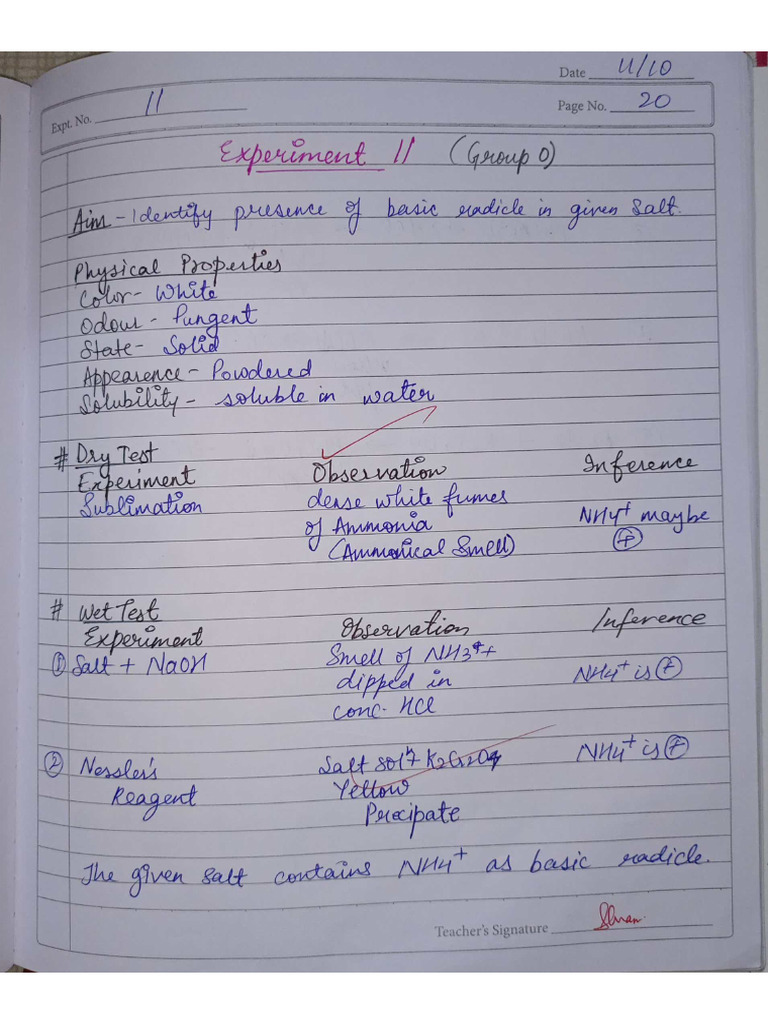 Date 11/10
Expt. No. 11
Page No. 20
Experiment 11 (Group 0)
Aim - Identify presence of basic radicle in given Salt.
Physical Properties
Color - White
Odour - Pungent
State - Solid
Appearence - Powdered
Solubility - soluble in water
# Dry Test
Experiment Observation Inference
Sublimation dense white fumes
of Ammonia NH4+ maybe
(Ammonical Smell) (+)
# Wet Test
Experiment Observation Inference
① Salt + NaOH Smell of NH3 +
dipped in NH4+ is (+)
conc. HCl
② Nessler's Salt sol + K2Cr2O7 NH4+ is (+)
Reagent Yellow
Precipate
The given salt contains NH4+ as basic radicle.
Teacher's Signature